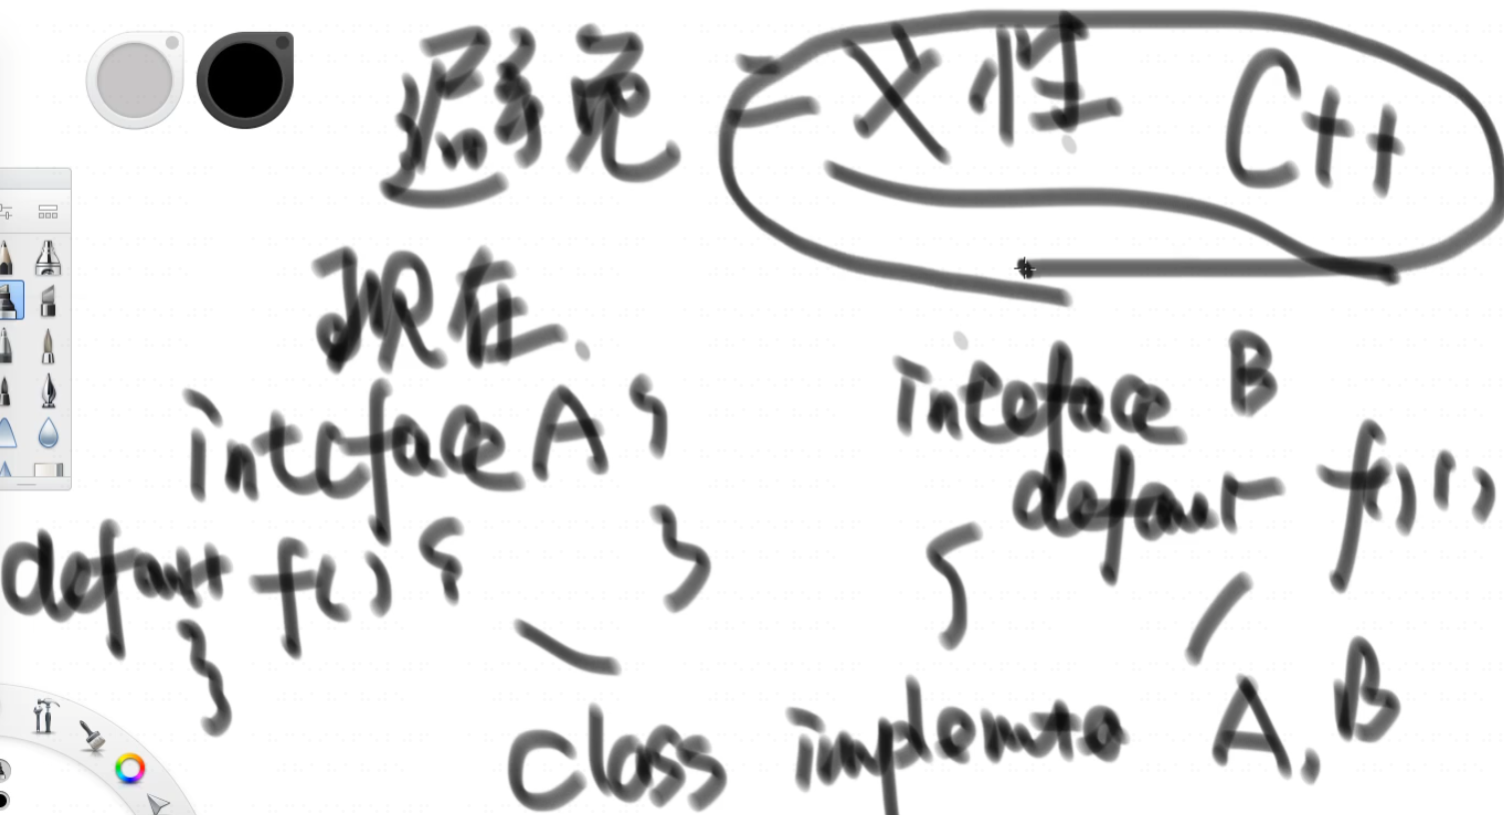 避免 二义性 C++
现在
interface A {
default f() {
}
}
interface B
{
default f() { }
class implements A, B